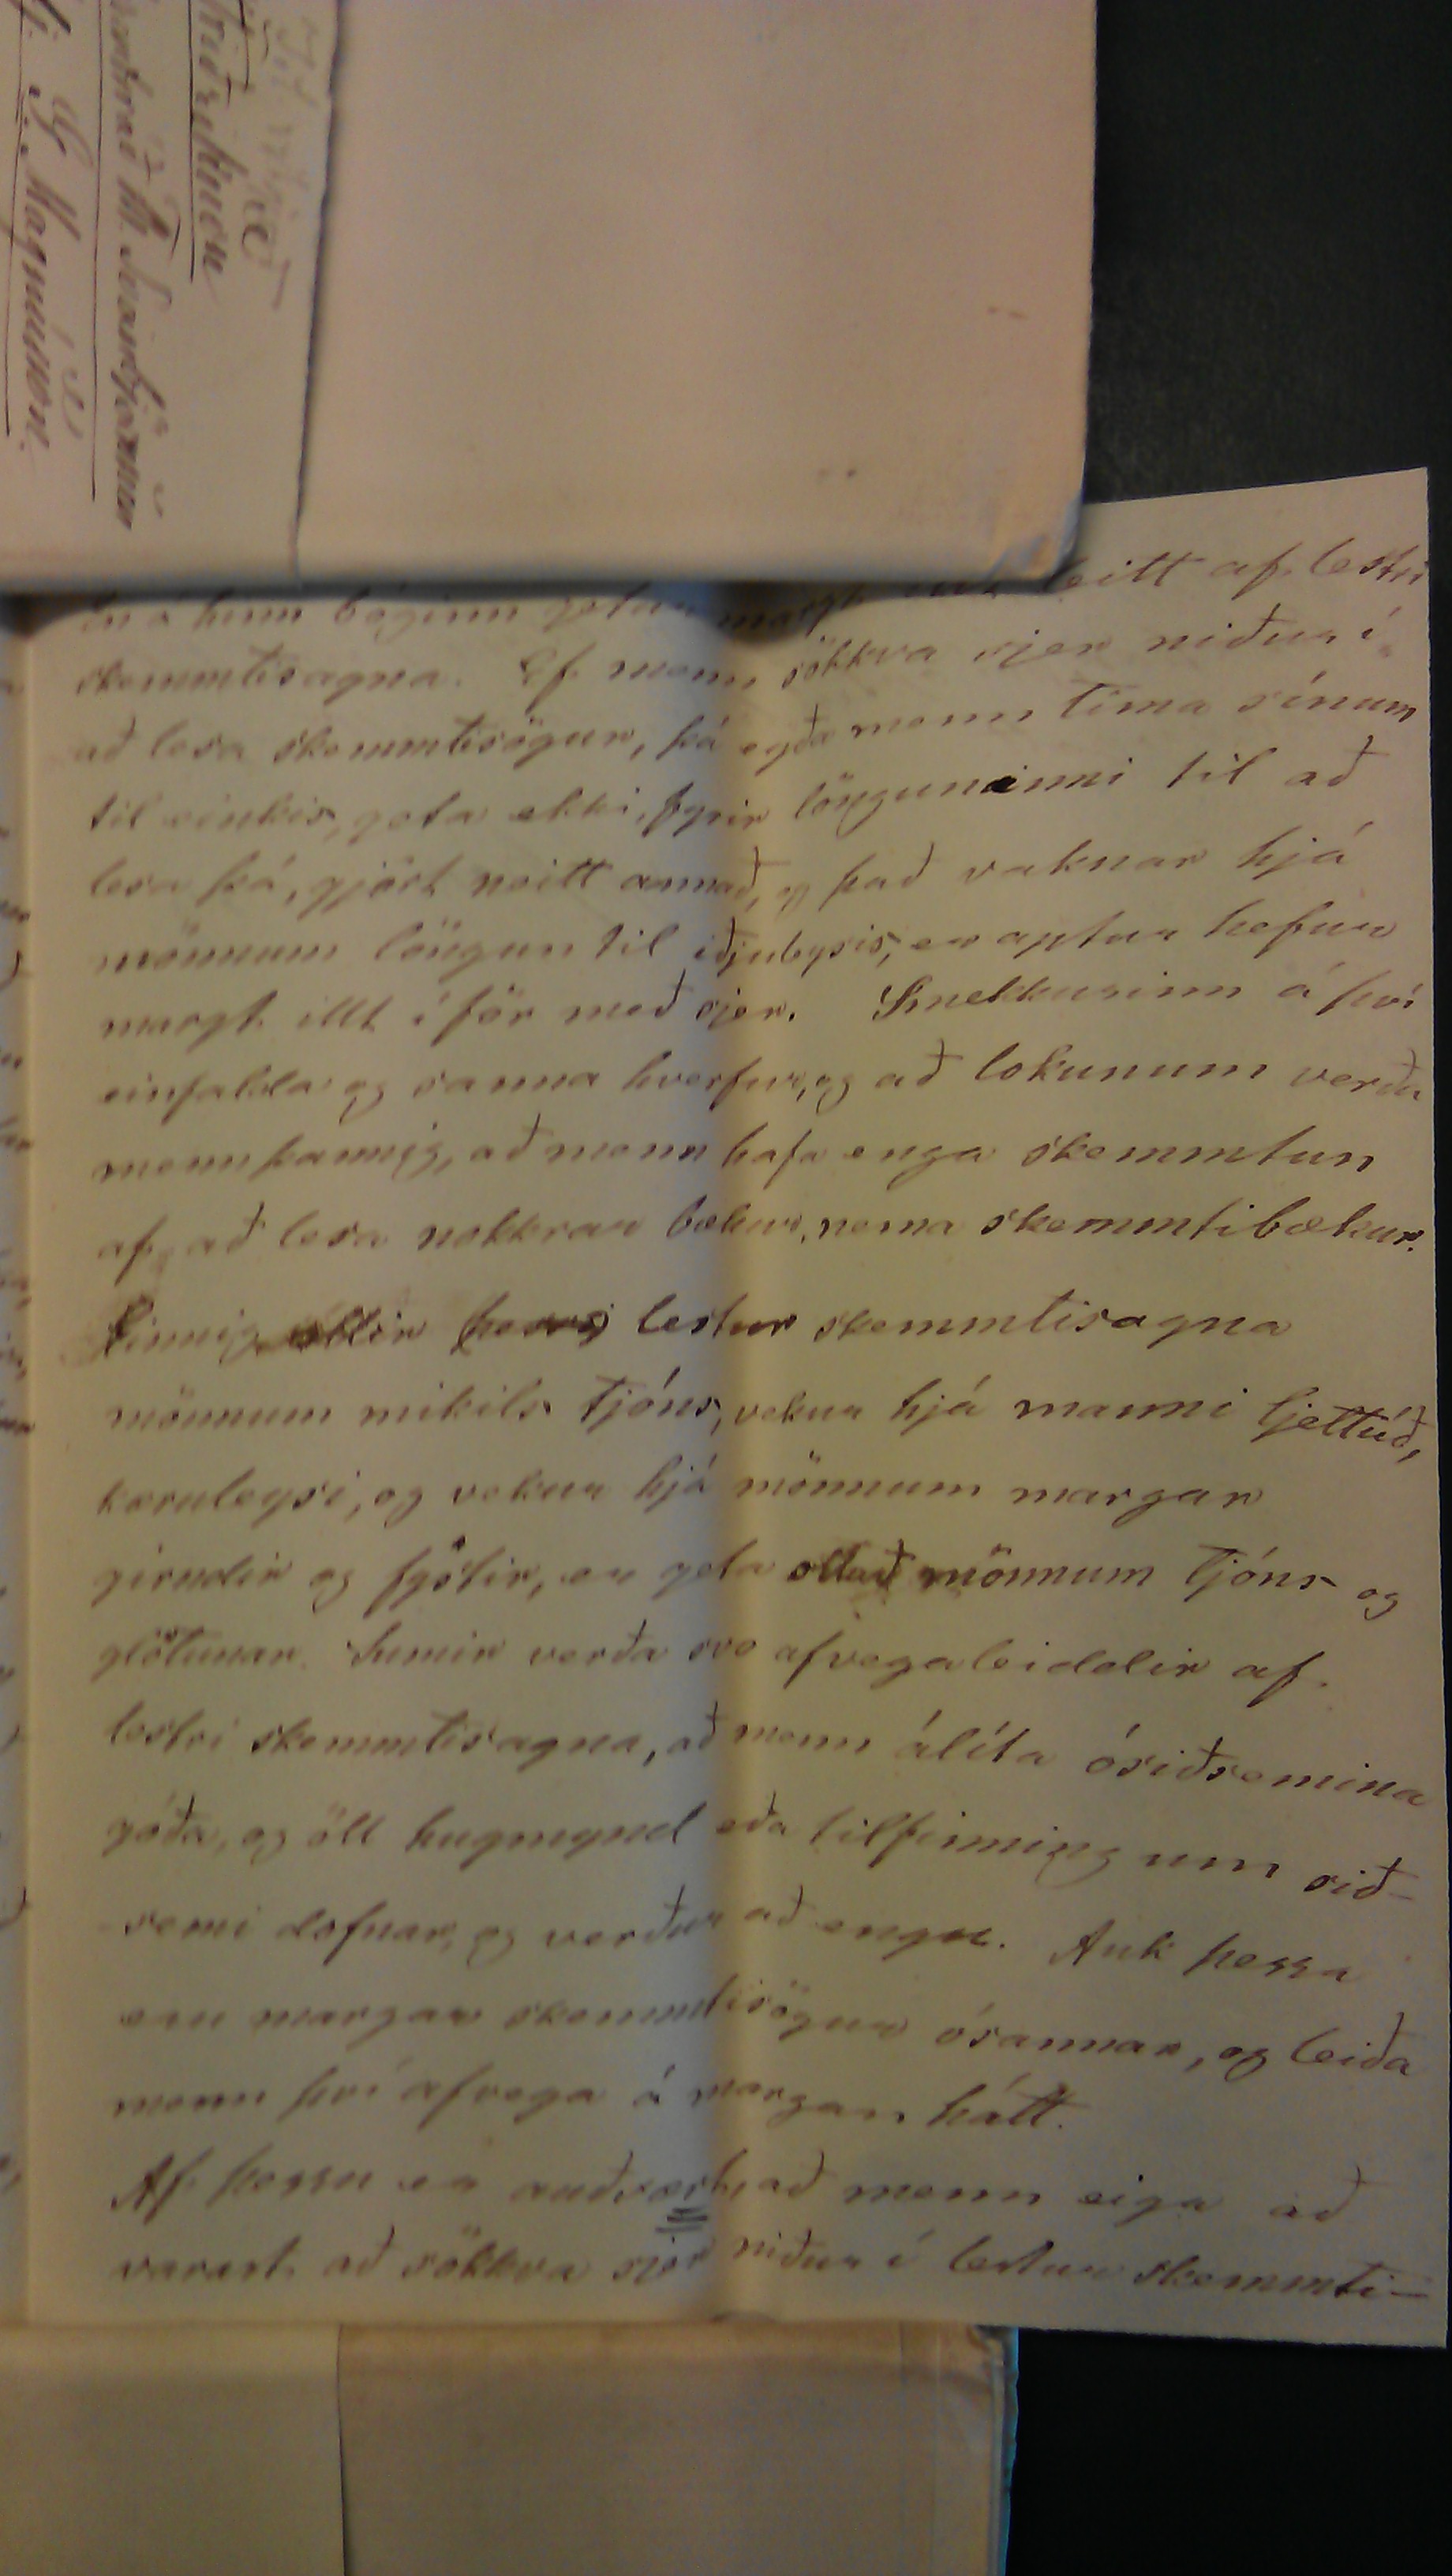 en á hinn bóginn getur margt illt leitt af lestri
skemmtisagna. Ef menn sökkva sjer niður í
að lesa skemmtisögur, þá eyða menn tíma sínum
til einkis, geta ekki, fyrir lönguninni til að
lesa þá, gjört neitt annað, og það vaknar hjá
mönnum löngun til iðjuleysis, er aptur hefur
margt illt í för með sjer. Smekkurinn á því
einfalda og sanna hverfur, og að lokunum verða
menn þannig, að menn hafa enga skemmtun
af að lesa nokkrar bækur, nema skemmtibækur.
Einnig ollir þessi lestur skemmtisagna
mönnum mikils tjóns, vekur hjá manni ljettúð,
kæruleysi, og vekur hjá mönnum margar
girndir og fýstir, er geta ollað mönnum tjóns og
glötunar. Sumir verða svo afvegaleiddir af
lestri skemmtisagna, að menn álíta ósiðsemina
góða, og öll hugmynd eða tilfinning um sið-
semi dofnar, og verður að engu. Auk þessa
eru margar skemmtisögur ósannar, og leiða
menn því afvega á margan hátt.
Af þessu er auðvært, að menn eiga að
varast að sökkva sjer niður í lestur skemmti-
Til
G. Magnússon.